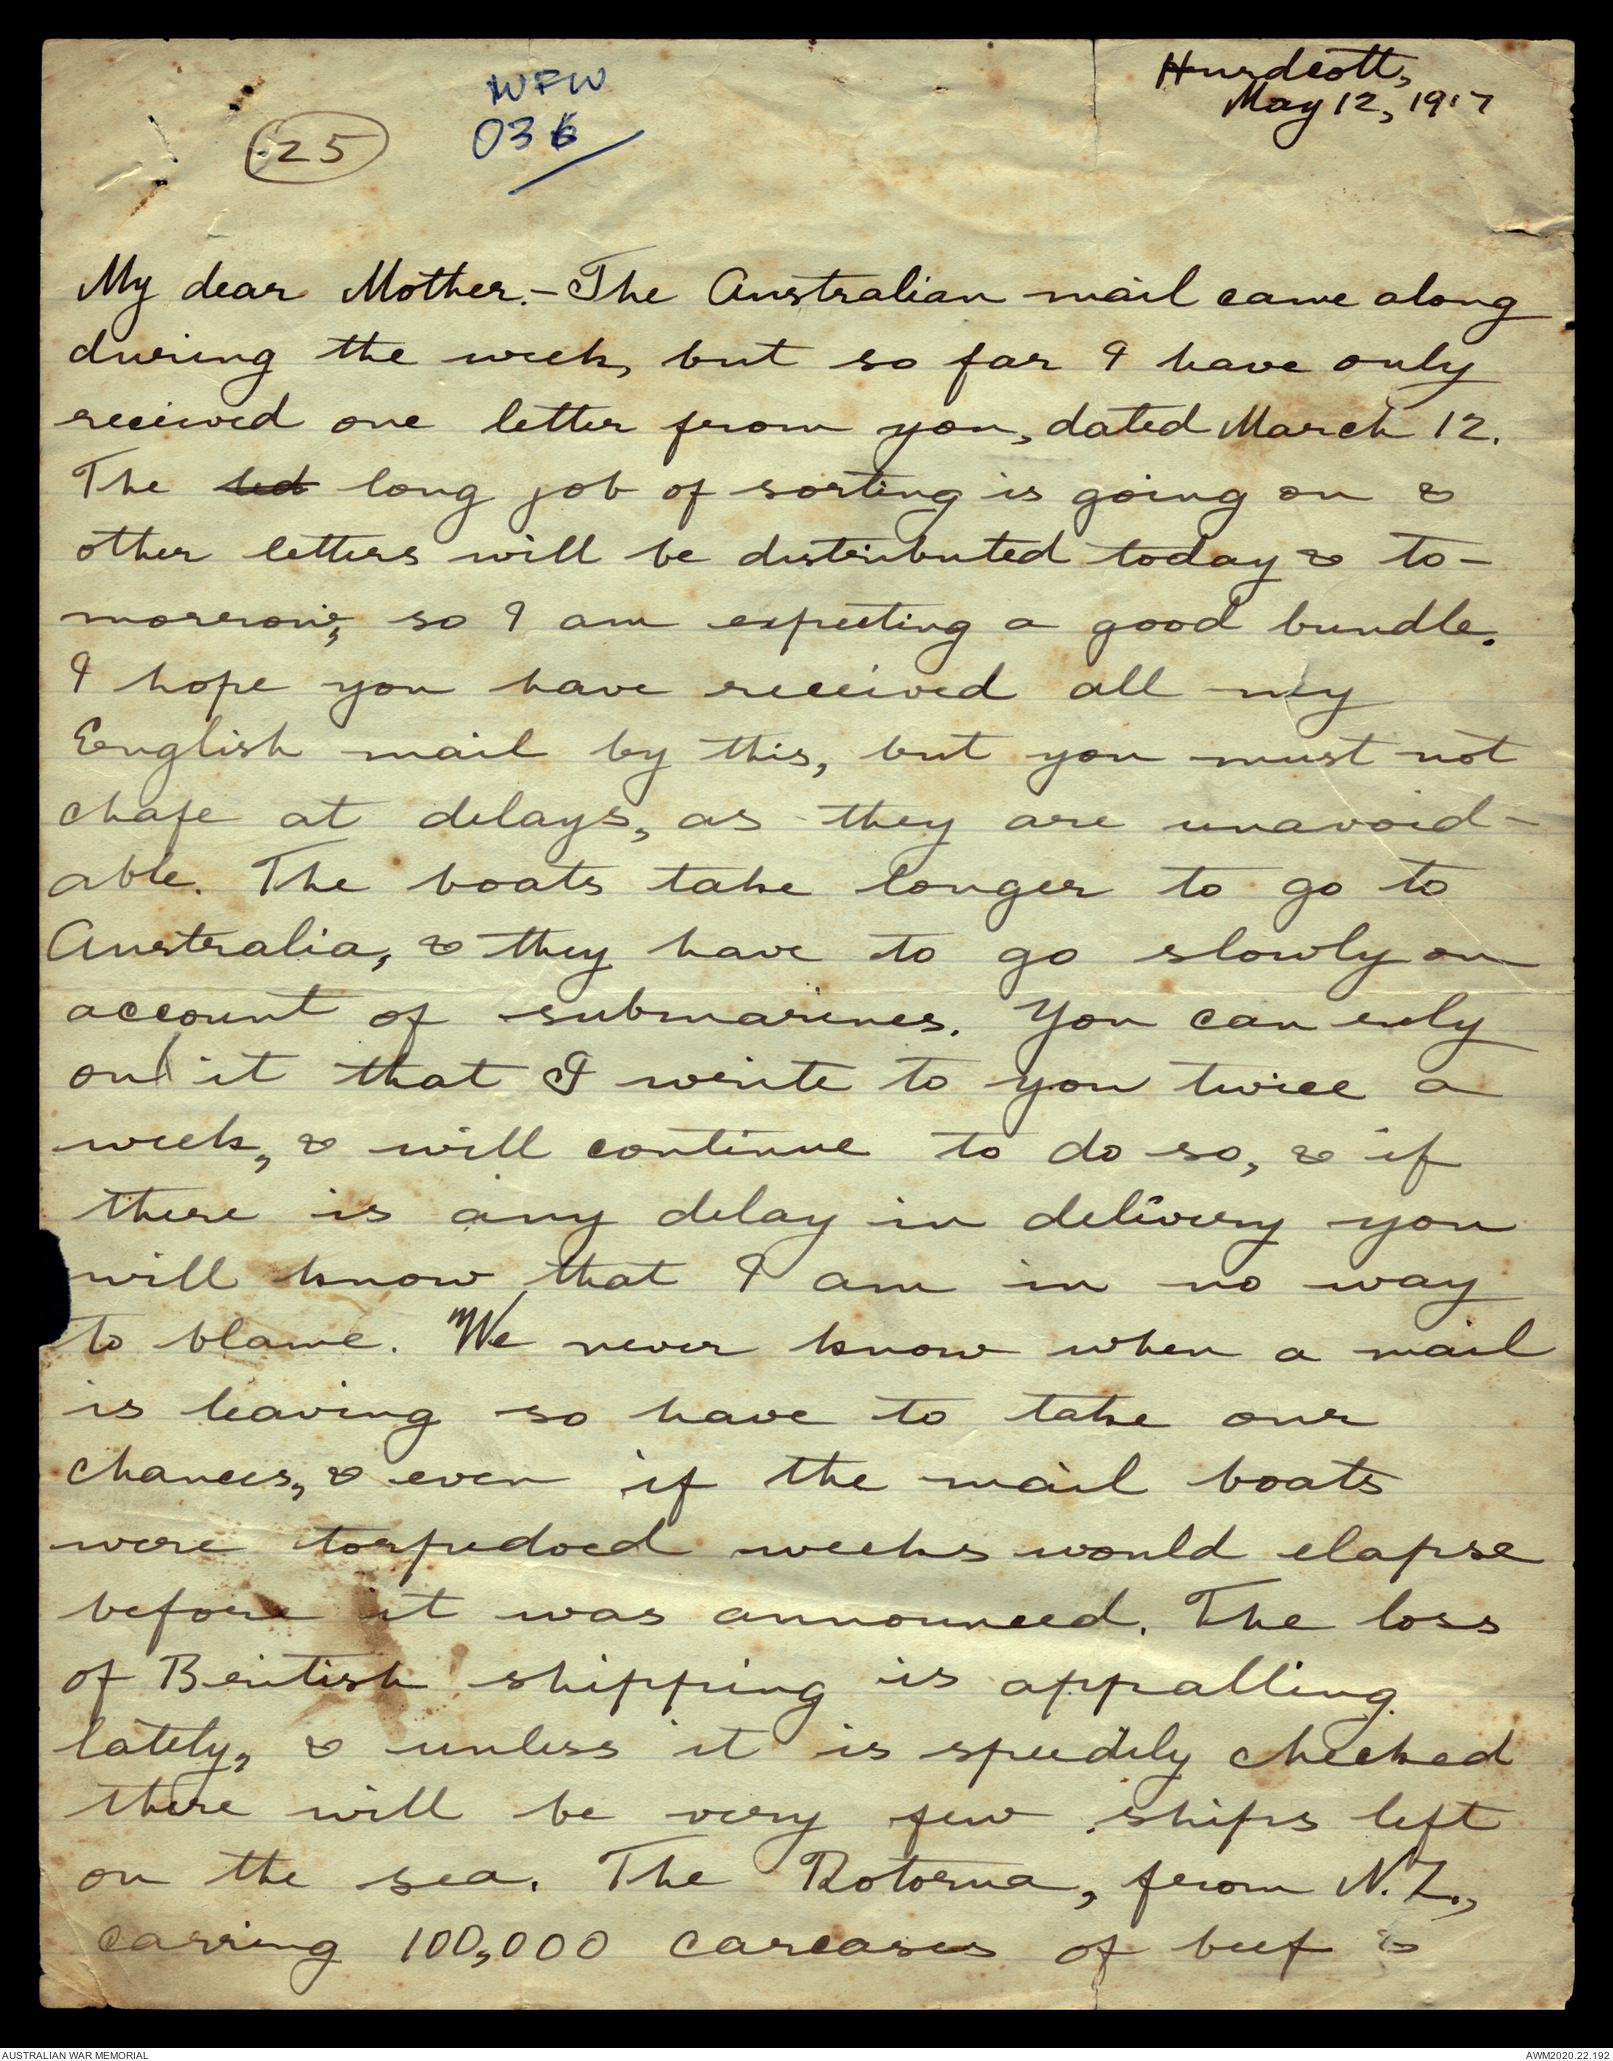 Hurdcott,
May 12, 1917
WFW
036
25
My dear Mother.- The Australian mail came along
during the week, but so far I have only
received one letter from you, dated March 12.
The long job of sorting is going on &
other letters will be distributed today & to-
morrow, so I am expecting a good bundle.
I hope you have received all my
English mail by this, but you must not
chafe at delays, as they are unavoid-
able. The boats take longer to go to
Australia, & they have to go slowly on
account of submarines. You can rely
on it that I write to you twice a
week, & will continue to do so, & if
there is any delay in delivery you
will know that I am in no way
to blame. We never know when a mail
is leaving so have to take our
chances, & even if the mail boats
were torpedoed weeks would elapse
before it was announced. The loss
of British shipping is appalling
lately, & unless it is speedily checked
there will be very few ships left
on the sea. The Rotorua, from N.Z.,
carring 100,000 carcases of beef &
AUSTRALIAN WAR MEMORIAL
AWM2020.22.192